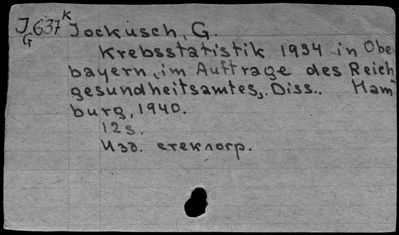 J 637 K Jockusch, G.
G
Krebsstatistik 1934 in Obe
bayern, im Auftrage des Reich
gesundheitsamtes,. Diss.. Ham
burg, 1940.
12 s.
Изд. стеклогр.